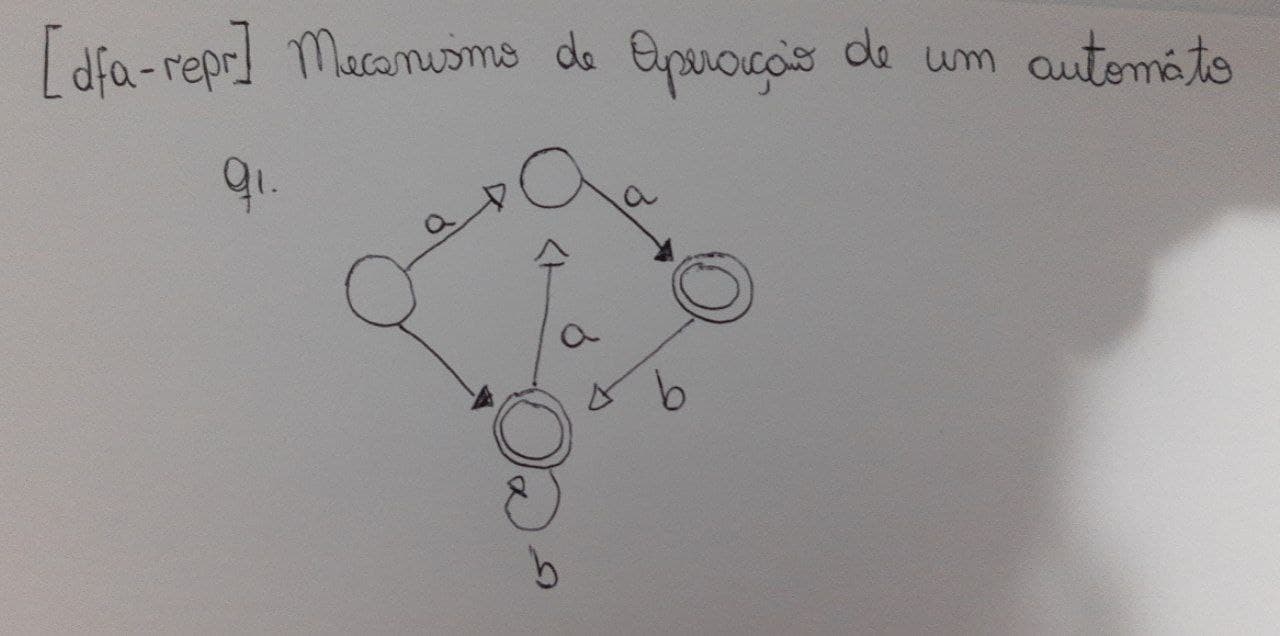 [dfa-repr] Mecanismo de Operação de um automáto
q1.
a
a
a
b
b